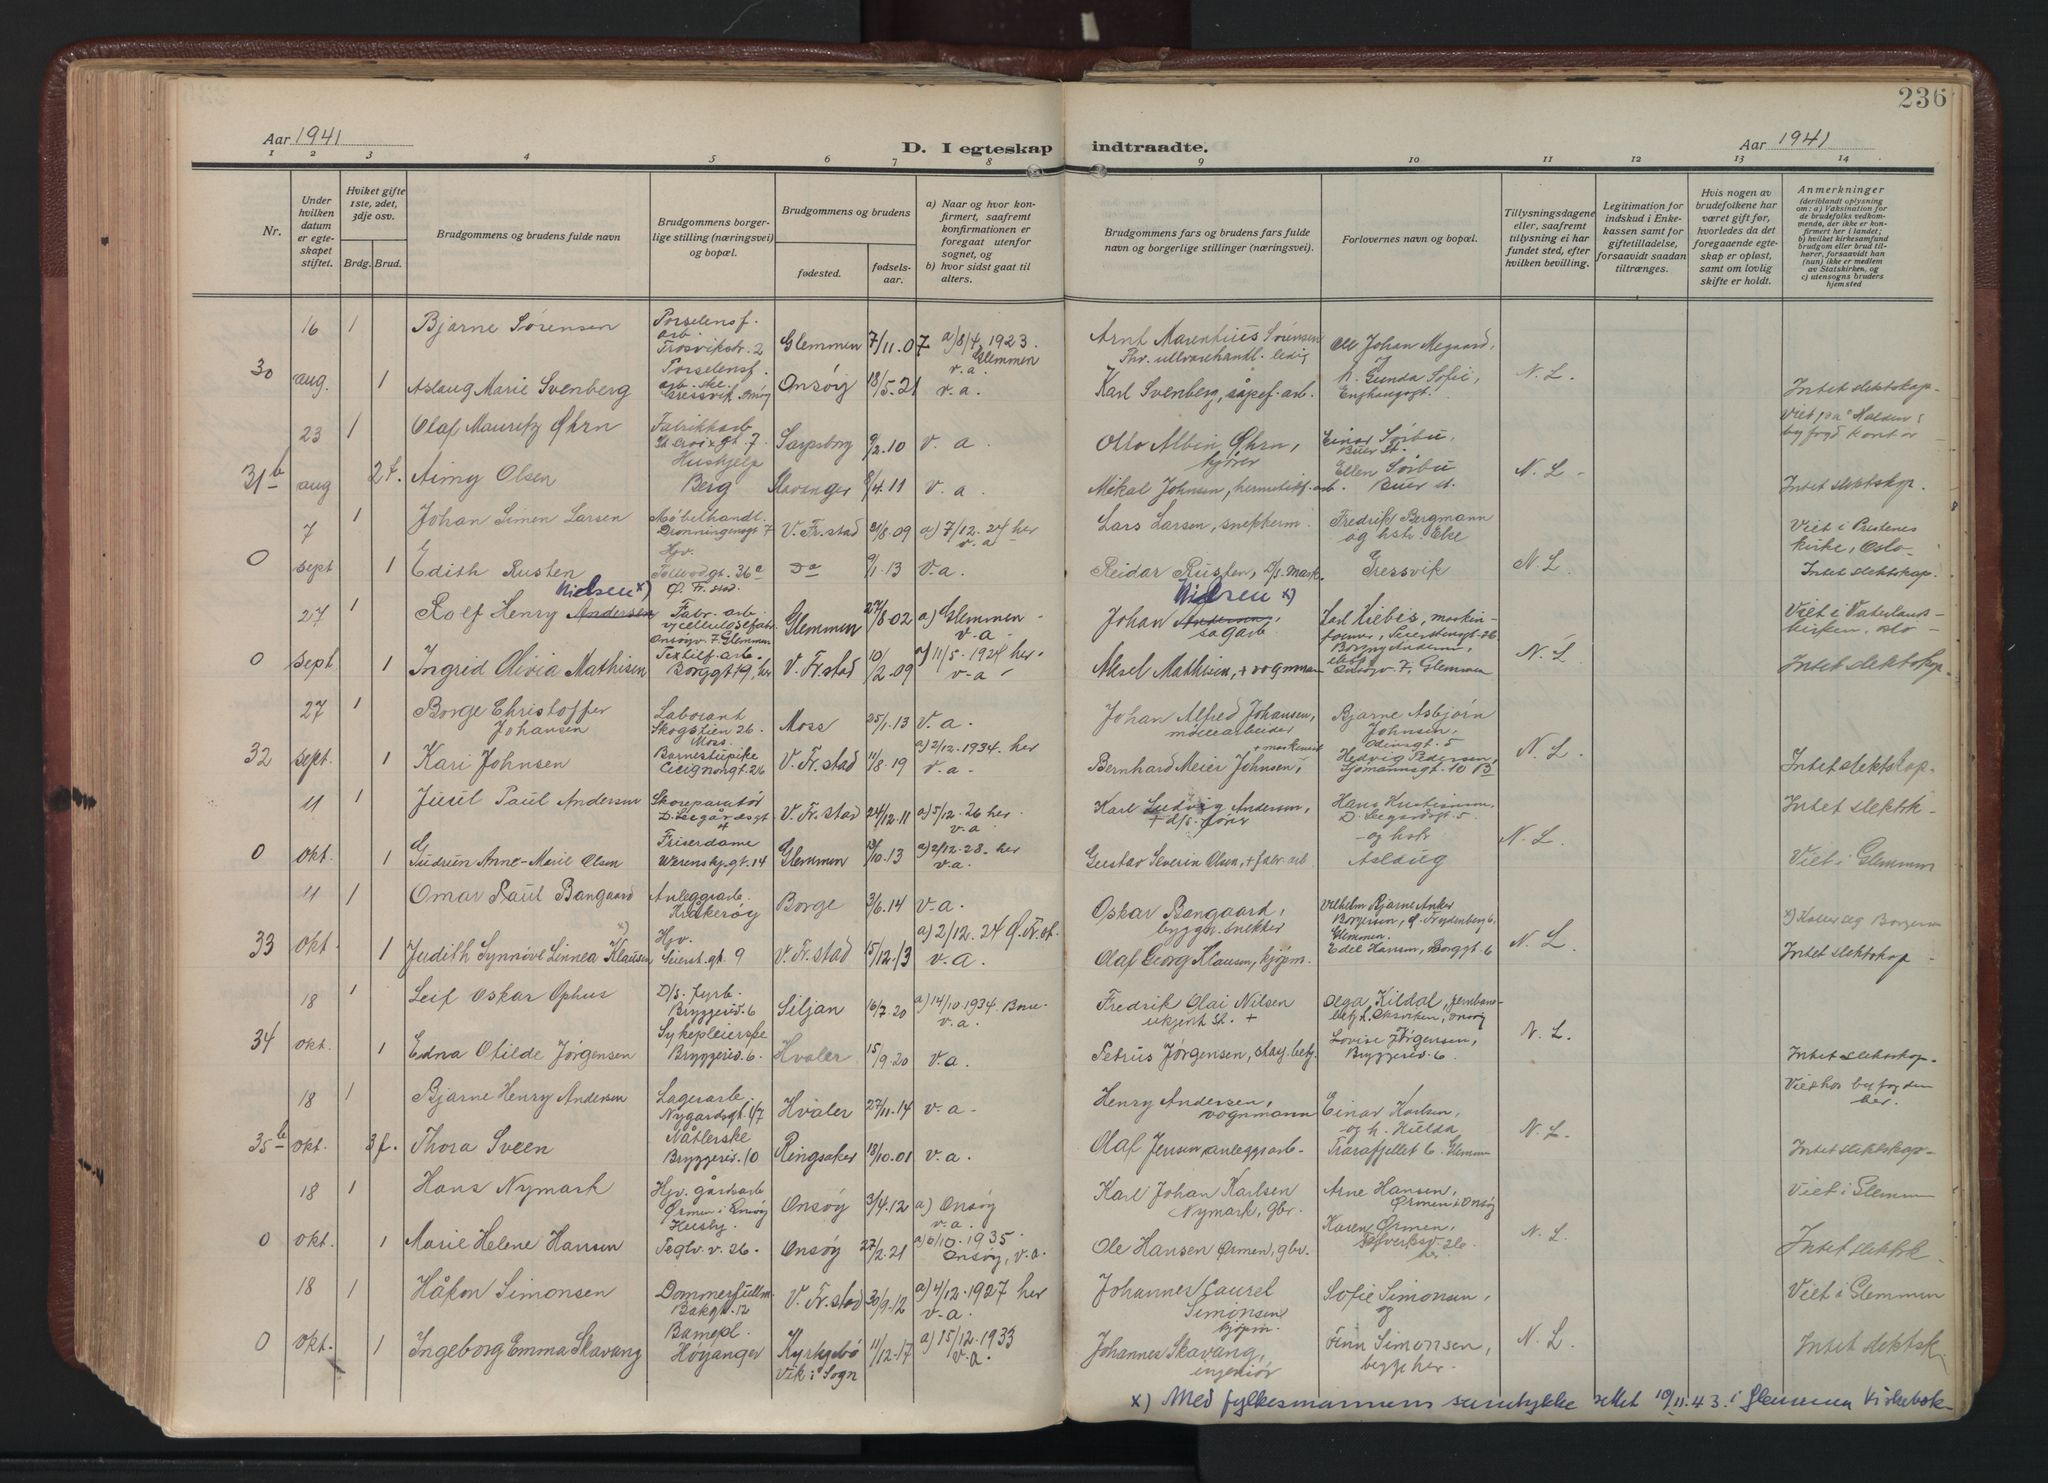 236
Aar 1941
D. I egteskap indtraadte.
Aar 1941
1 2 3 4 5 6 7 8 9 10 11 12 13 14
Nr.
Under hvilken datum er egteskapet stiftet.
Hvilket gifte 1ste, 2det, 3dje osv.
Brdg. Brud.
Brudgommens og brudens fulde navn
Brudgommens borgerlige stilling (næringsvei) og bopæl.
Brudgommens og brudens
fødested.
fødselsaar.
a) Naar og hvor konfirmert, saafremt konfirmationen er foregaat utenfor sognet, og
b) hvor sidst gaat til alters.
Brudgommens fars og brudens fars fulde navn og borgerlige stillinger (næringsvei).
Forlovernes navn og bopæl.
Tillysningsdagene eller, saafremt tillysning ei har fundet sted, efter hvilken bevilling.
Legitimation for indskud i Enkekassen samt for giftetilladelse, forsaavidt saadan tiltrænges.
Hvis nogen av brudefolkene har været gift før, hvorledes da det foregaaende egteskap er opløst, samt om lovlig skifte er holdt.
Anmerkninger
(deriblandt oplysning om: a) Vaksination for de brudefolks vedkommende, der ikke er konfirmert her i landet; b) hvilket kirkesamfund brudgom eller brud tilhører, forsaavidt han (hun) ikke er medlem av Statskirken, og c) utensogns bruders hjemsted
16 1 Bjarne Sørensen Porselensf. arb Trosvikstr. 2 Glemmen 7/11.07 a) 8/4.1923. Glemmen v.a. Arnt Marentius Sørensen
30 aug. 1 Aslaug Marie Svenberg Porselensf. arb.ske. Gressvik Onsøy Onsøy 18/5.21 v.a. Karl Svenberg, såpef. arb. N. Gunda Sofie, Enghaugsgt. N.L. Intet slektskap.
23 1 Olaf Mauritz Øhrn Fabrikkarb St. Croixgt. 7 Sarpsborg 9/2.10 v.a. Otto Albin Øhrn, kjører Einar Sørbu, Buer st. Viet på Halden byfogd kontor
31b aug 2 f. Aimy Olsen Hushjelp Berg Stavanger 8/4.11 v.a. Mikal Johnsen, hermetikf. arb. Ellen Sørbu Buer st. N.L. Intet slektskap.
7 1 Johan Simen Larsen Møbelhandl. Dronningensgt 7 V. Fr.stad 31/8.09 a) 7/12.24 her v.a Lars Larsen, snekkerm. Fredrik Bergmann og hstr. Elke Viet i Prestenes kirke, Oslo
0 sept 1 Edith Rusten Hjv. Tollbodgt. 36a Ø. Fr.stad Do 9/1.13 v.a. Reidar Rusten, D/s. mask. Gressvik N.L. Intet slektskap.
27 1 Rolf Henry Andersen Nielsen x) Fabr. arb. v/cellulosefabr. Onsøyv. 7 Glemmen Glemmen 27/8.02 a) Glemmen v.a. Johan Andersen, Nielsen x) sagarb. Viet i Vaterlandskirken, Oslo
0 sept 1 Ingrid Olivia Mathisen Textilf. arb. Borggt 49, her V. Fr.stad 10/2.09 a) 11/5.1924 her. v.a. Aksel Mathisen, + vognman Onsøyv. 7. Glemmen N.L. Intet slektskap.
27 1 Borge Christoffer Johansen Laborant Skogstien 26. Moss. Moss 25/1.13 v.a. Johan Alfred Johansen, møllearbeider Bjarne Asbjørn Johnsen, Odinsgt. 5
32 sept. 1 Kari Johnsen Barnestupike Cicignongt. 26 V. Fr.stad 11/8.19 a) 2/12.1934. her v.a. Bernhard Meier Johnsen, + maskinist Hedvig Pedersen, Sjømannsgt. 10 B N.L. Intet slektskap.
11 1 Juul Paul Andersen Skoreparatør D. Leegårdsgt 4 V. Fr.stad 24/12.11 a) 5/12.26 her v.a. Karl Ludvig Andersen, + d/s. fører Hans Kristiansen, D. Leegårdsgt. 5. Intet slektsk.
0 okt. 1 Gudrun Anne-Marie Olsen Friserdame Werenskj.gt. 14 Glemmen 13/10.13 a) 2/12.28. her v.a. Gustav Severin Olsen, + fabr. arb og hstr Aslaug N.L. Viet i Glemmen
11 1 Omar Paul Bangaard Anleggsarb Kråkerøy Borge 3/6.14 v.a. Oskar Bangaard, byggn. snekker Vilhelm Bjarne Anker Borgersen, Ø. Frydenberg 6, Glemmen. x) Kaller seg Borgersen
33 okt. 1 Judith Synnøve Linnea Klausen x) Hjv. Seierst.gt. 9 V. Fr.stad 15/12.13 a) 2/12.24 Ø. Fr.st. v.a. Olaf Georg Klausen, kjøpm. Edel Hansen, Borggt. 6 N.L. Intet slektskap
18 1 Leif Oskar Ophus D/s. fyrb. Bryggeriv. 6 Siljan 16/7.20 a) 14/10.1934. v.a. Fredrik Olai Nilsen ukjent st. + Olga Kildal, jernbanebetj.
34 okt. 1 Edna Otilde Jørgensen Sykepleierske Bryggeriv. 6. Hvaler 15/9.20 v.a. Petrus Jørgensen, betj. Lovise Jørgensen, Bryggeriv. 6. N.L. Intet slektskap.
18 1 Bjarne Henry Andersen Lagerarb. Nygårdsgt. Hvaler 27/11.14 v.a. Henry Andersen, vognmann Einar Karlsen, og h. Hulda Viet hos byfogden her.
35b okt. 3f. Thora Sveen Nåtlerske Bryggeriv. 10 Ringsaker 18/10.01 v.a. Olaf Jensen anleggsarb. Tarafjellet 6. Glemmen N.L. Intet slektskap.
18 1 Hans Nymark Hjv. gårdsarb Ørmen i Onsøy Onsøy 3/4.12 a) Onsøy v.a. Karl Johan Karlsen Nymark, gbr. Arne Hansen, Ørmen i Onsøy Viet i Glemmen
0 okt. 1 Marie Helene Hansen Hushj. Teglv. v. 26. Onsøy 27/2.21 a) 6/10.1935 Onsøy, v.a. Ole Hansen Ørmen, gbr. Karen Ørmen, Teglverksv. 26 her. N.L. Intet slektsk
18 1 Håkon Simonsen Dommerfullm. Bakgt. 12 V. Fr.stad 30/9.12 a) 4/12.1927 her v.a. Johannes Laurel Simonsen kjøpm. Sofie Simonsen, og Viet i Glemmen
0 okt. 1 Ingeborg Emma Skavang Barnepl. Høyanger Kyrkjebø Vik i Sogn 11/12.17 a) 15/12.1933 v.a. Johannes Skavang, ingeniør Finn Simonsen, begge her. N.L. Intet slektsk.
x) Med fylkesmannens samtykke rettet 10/11.43. i Glemmen kirkebok